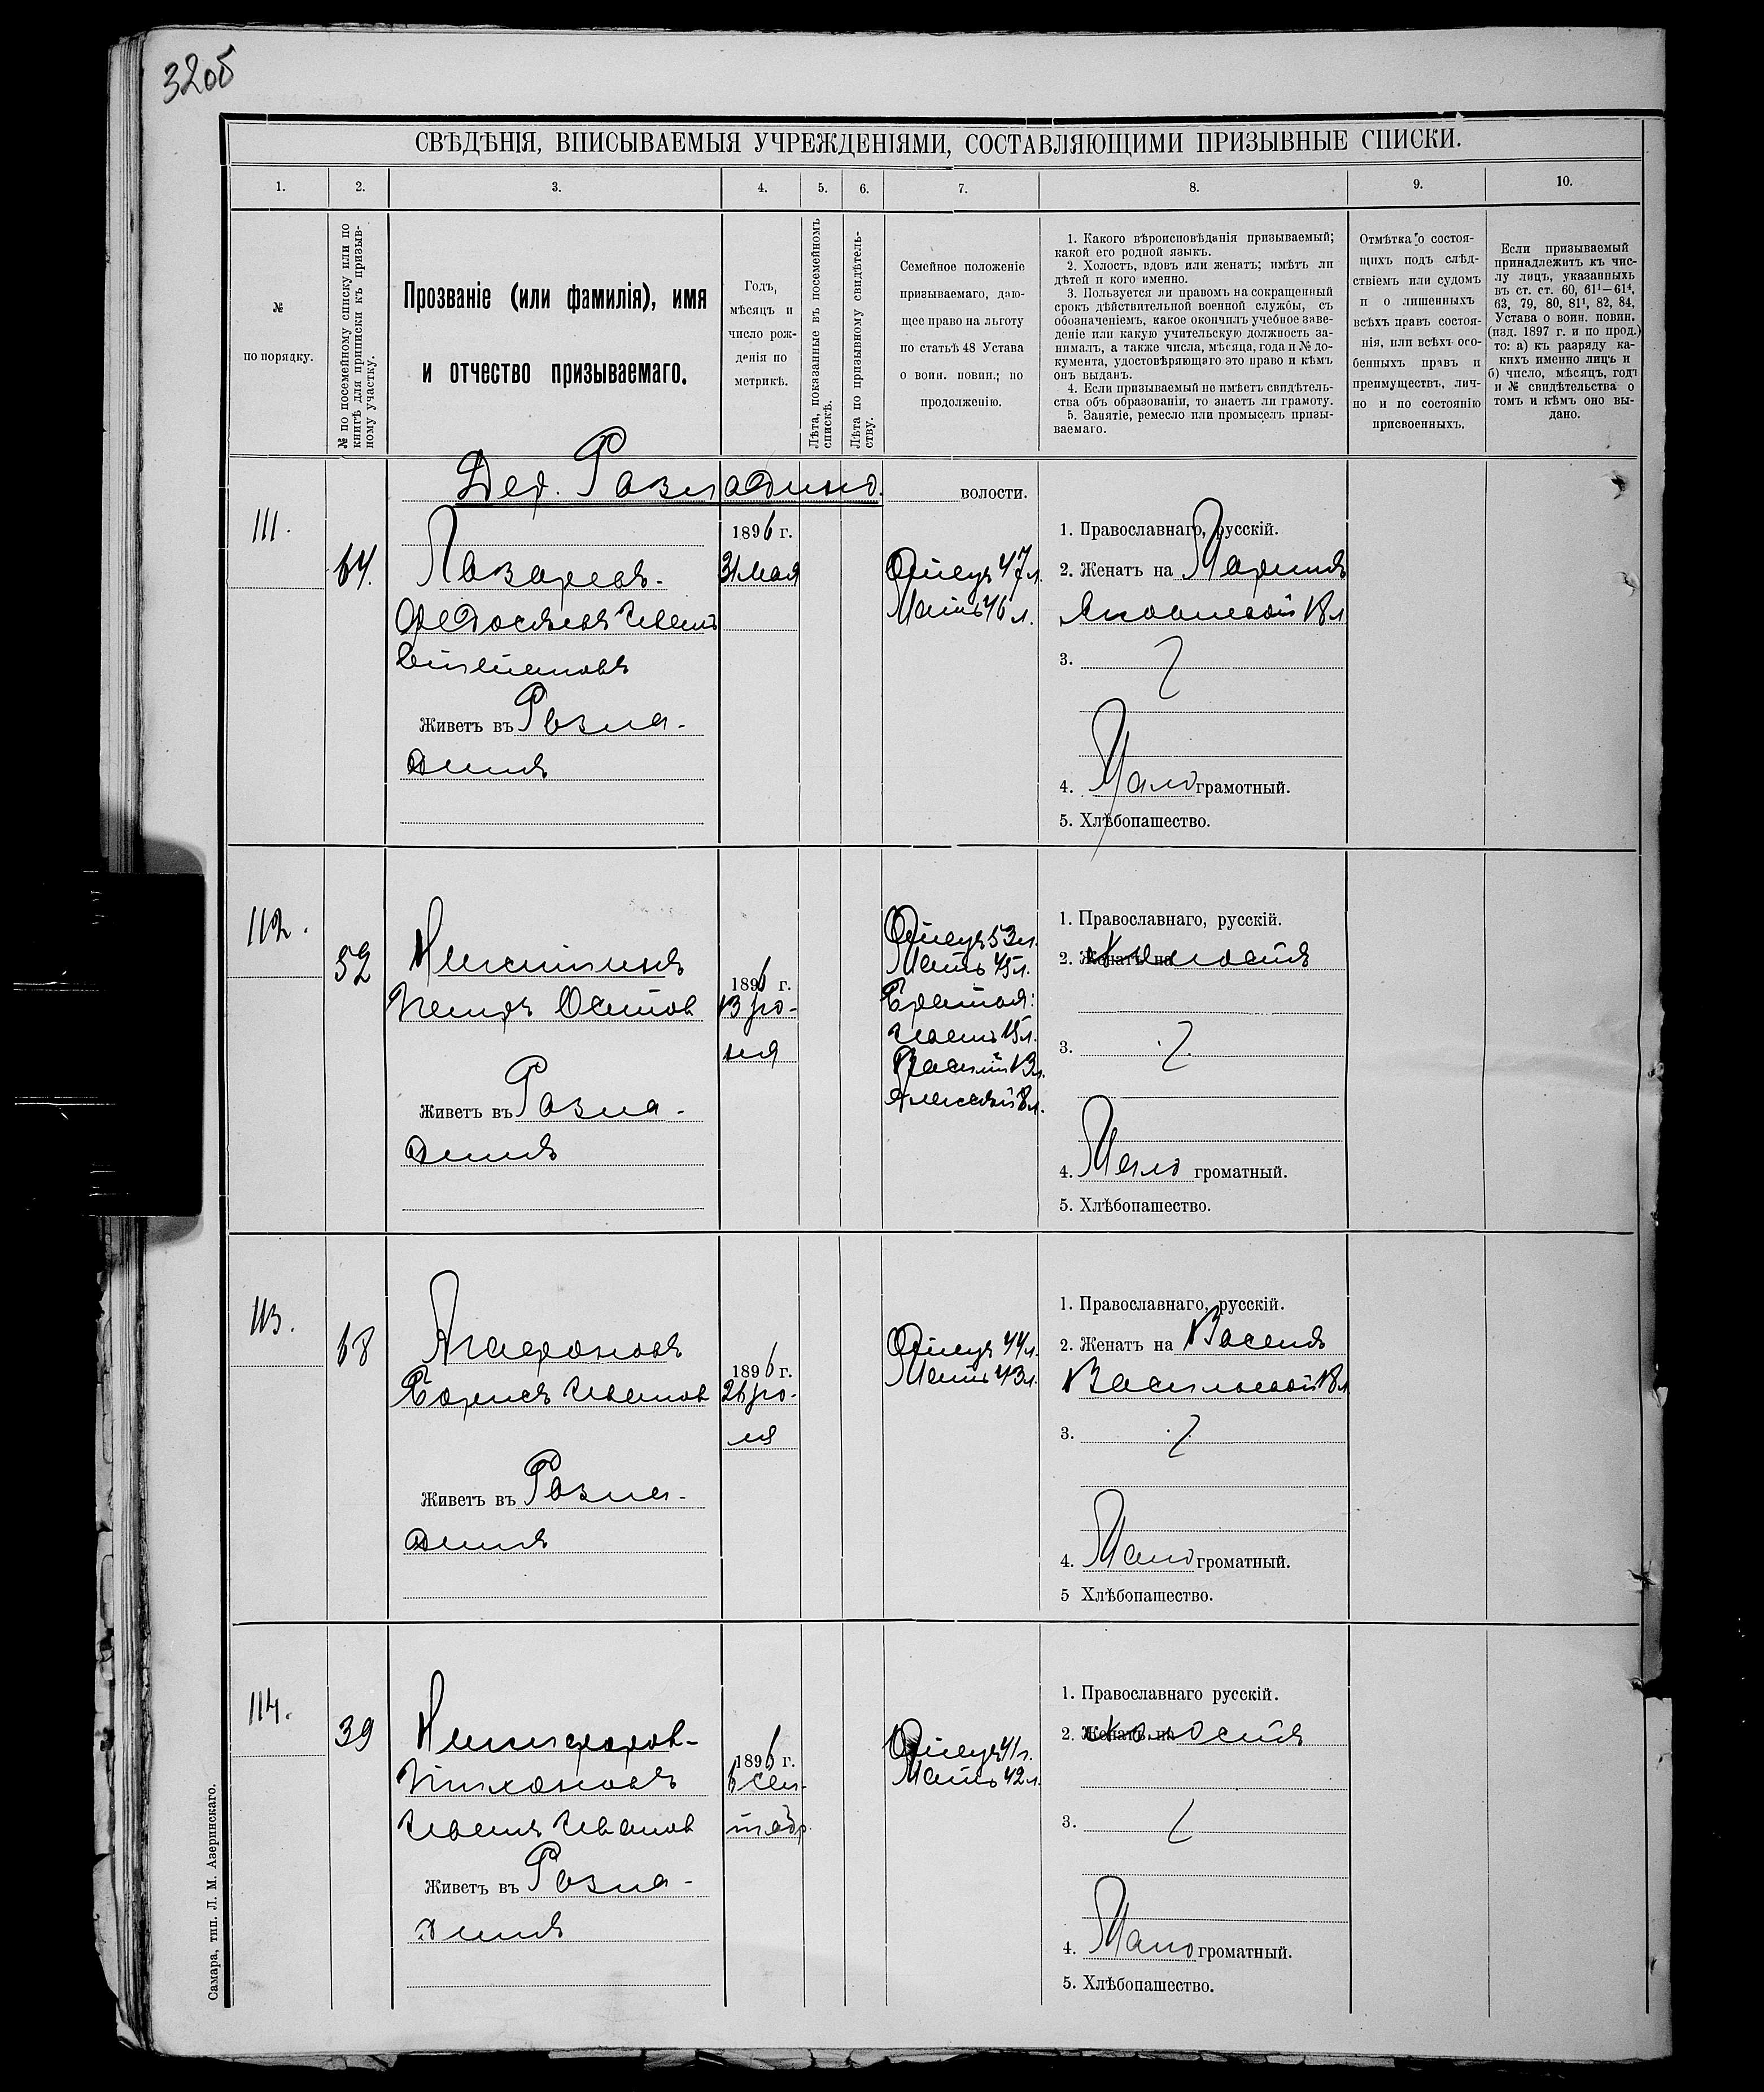 32об
СВѢДѢНІЯ, ВПИСЫВАЕМЫЯ УЧРЕЖДЕНІЯМИ, СОСТАВЛЯЮЩИМИ ПРИЗЫВНЫЕ СПИСКИ.
1. 2. 3. 4. 5. 6. 7. 8. 9. 10.
№
по порядку.
№ по посемейному списку или по
книгѣ для приписки къ призыв-
ному участку.
Прозваніе (или фамилія), имя
и отчество призываемаго.
Годъ,
мѣсяцъ и
число рож-
денія по
метрикѣ.
Лѣта, показанные въ посемейномъ
спискѣ.
Лѣта по призывному свидѣтель-
ству.
Семейное положеніе
призываемаго, даю-
щее право на льготу
по статьѣ 48 Устава
о воин. повин.; по
продолженію.
1. Какого вѣроисповѣданія призываемый;
какой его родной языкъ.
2. Холостъ, вдовъ или женатъ; имѣтъ ли
дѣтей и кого именно.
3. Пользуется ли правомъ на сокращенный
срокъ дѣйствительной военной службы, съ
обозначеніемъ, какое окончилъ учебное заве-
деніе или какую учительскую должность за-
нималъ, а также числа, мѣсяца, года и № до-
кумента, удостовѣряющаго это право и кѣмъ
онъ выданъ.
4. Если призываемый не имѣетъ свидѣтель-
ства объ образованіи, то знаетъ ли грамоту.
5. Занятіе, ремесло или промыселъ призы-
ваемаго.
Отмѣтка о состоя-
щихъ подъ слѣд-
ствіемъ или судомъ
и о лишенныхъ
всѣхъ правъ состоя-
нія, или всѣхъ осо-
бенныхъ правъ и
преимуществъ, лич-
но и по состоянію
присвоенныхъ.
Если призываемый
принадлежитъ къ чис-
лу лицъ, указанныхъ
въ ст. ст. 60, 61¹—61⁴,
63, 79, 80, 81¹, 82, 84,
Устава о воин. повин.
(изд. 1897 г. и по прод.)
то: а) къ разряду ка-
кихъ именно лицъ и
б) число, мѣсяцъ, годъ
и № свидѣтельства о
томъ и кѣмъ оно вы-
дано.
Дер. Разладино. волости.
111.
64.
Лазаревъ-
Федосѣевъ Иванъ
Степановъ
Живетъ въ Разла-
динѣ
1896 г.
31 мая
Отецъ 47 л.
Мать 46 л.
1. Православнаго, русскій.
2. Женатъ на Маринѣ
Яковлевой 18 л
3.
4. Мало грамотный.
5. Хлѣбопашество.
112.
52
Никитинъ
Петръ Осипов
Живетъ въ Разла-
динѣ
1896 г.
13 ію-
ня
Отецъ 53 л.
Мать 45 л.
Братья:
Иванъ 15 л.
Василій 13 л.
Алексѣй 8 л.
1. Православнаго, русскій.
2. Женатъ на Холостъ
3.
4. Мало громатный.
5. Хлѣбопашество.
113.
68
Агафоновъ
Борисъ Иванов
Живетъ въ Разла-
динѣ
1896 г.
26 ію-
ля
Отецъ 44 л.
Мать 43 л.
1. Православнаго, русскій.
2. Женатъ на Васенѣ
Васильевой 18 л
3.
4. Мало громатный.
5 Хлѣбопашество.
114.
39
Никифоров-
Тихоновъ
Иванъ Иванов
Живетъ въ Разла-
динѣ
1896 г.
6 сен-
тябр.
Отецъ 41 г.
Мать 42 л.
1. Православнаго русскій.
2. Женатъ на Холостъ
3.
4. Мало громатный.
5. Хлѣбопашество.
Самара, тип. Л. М. Азеринскаго.